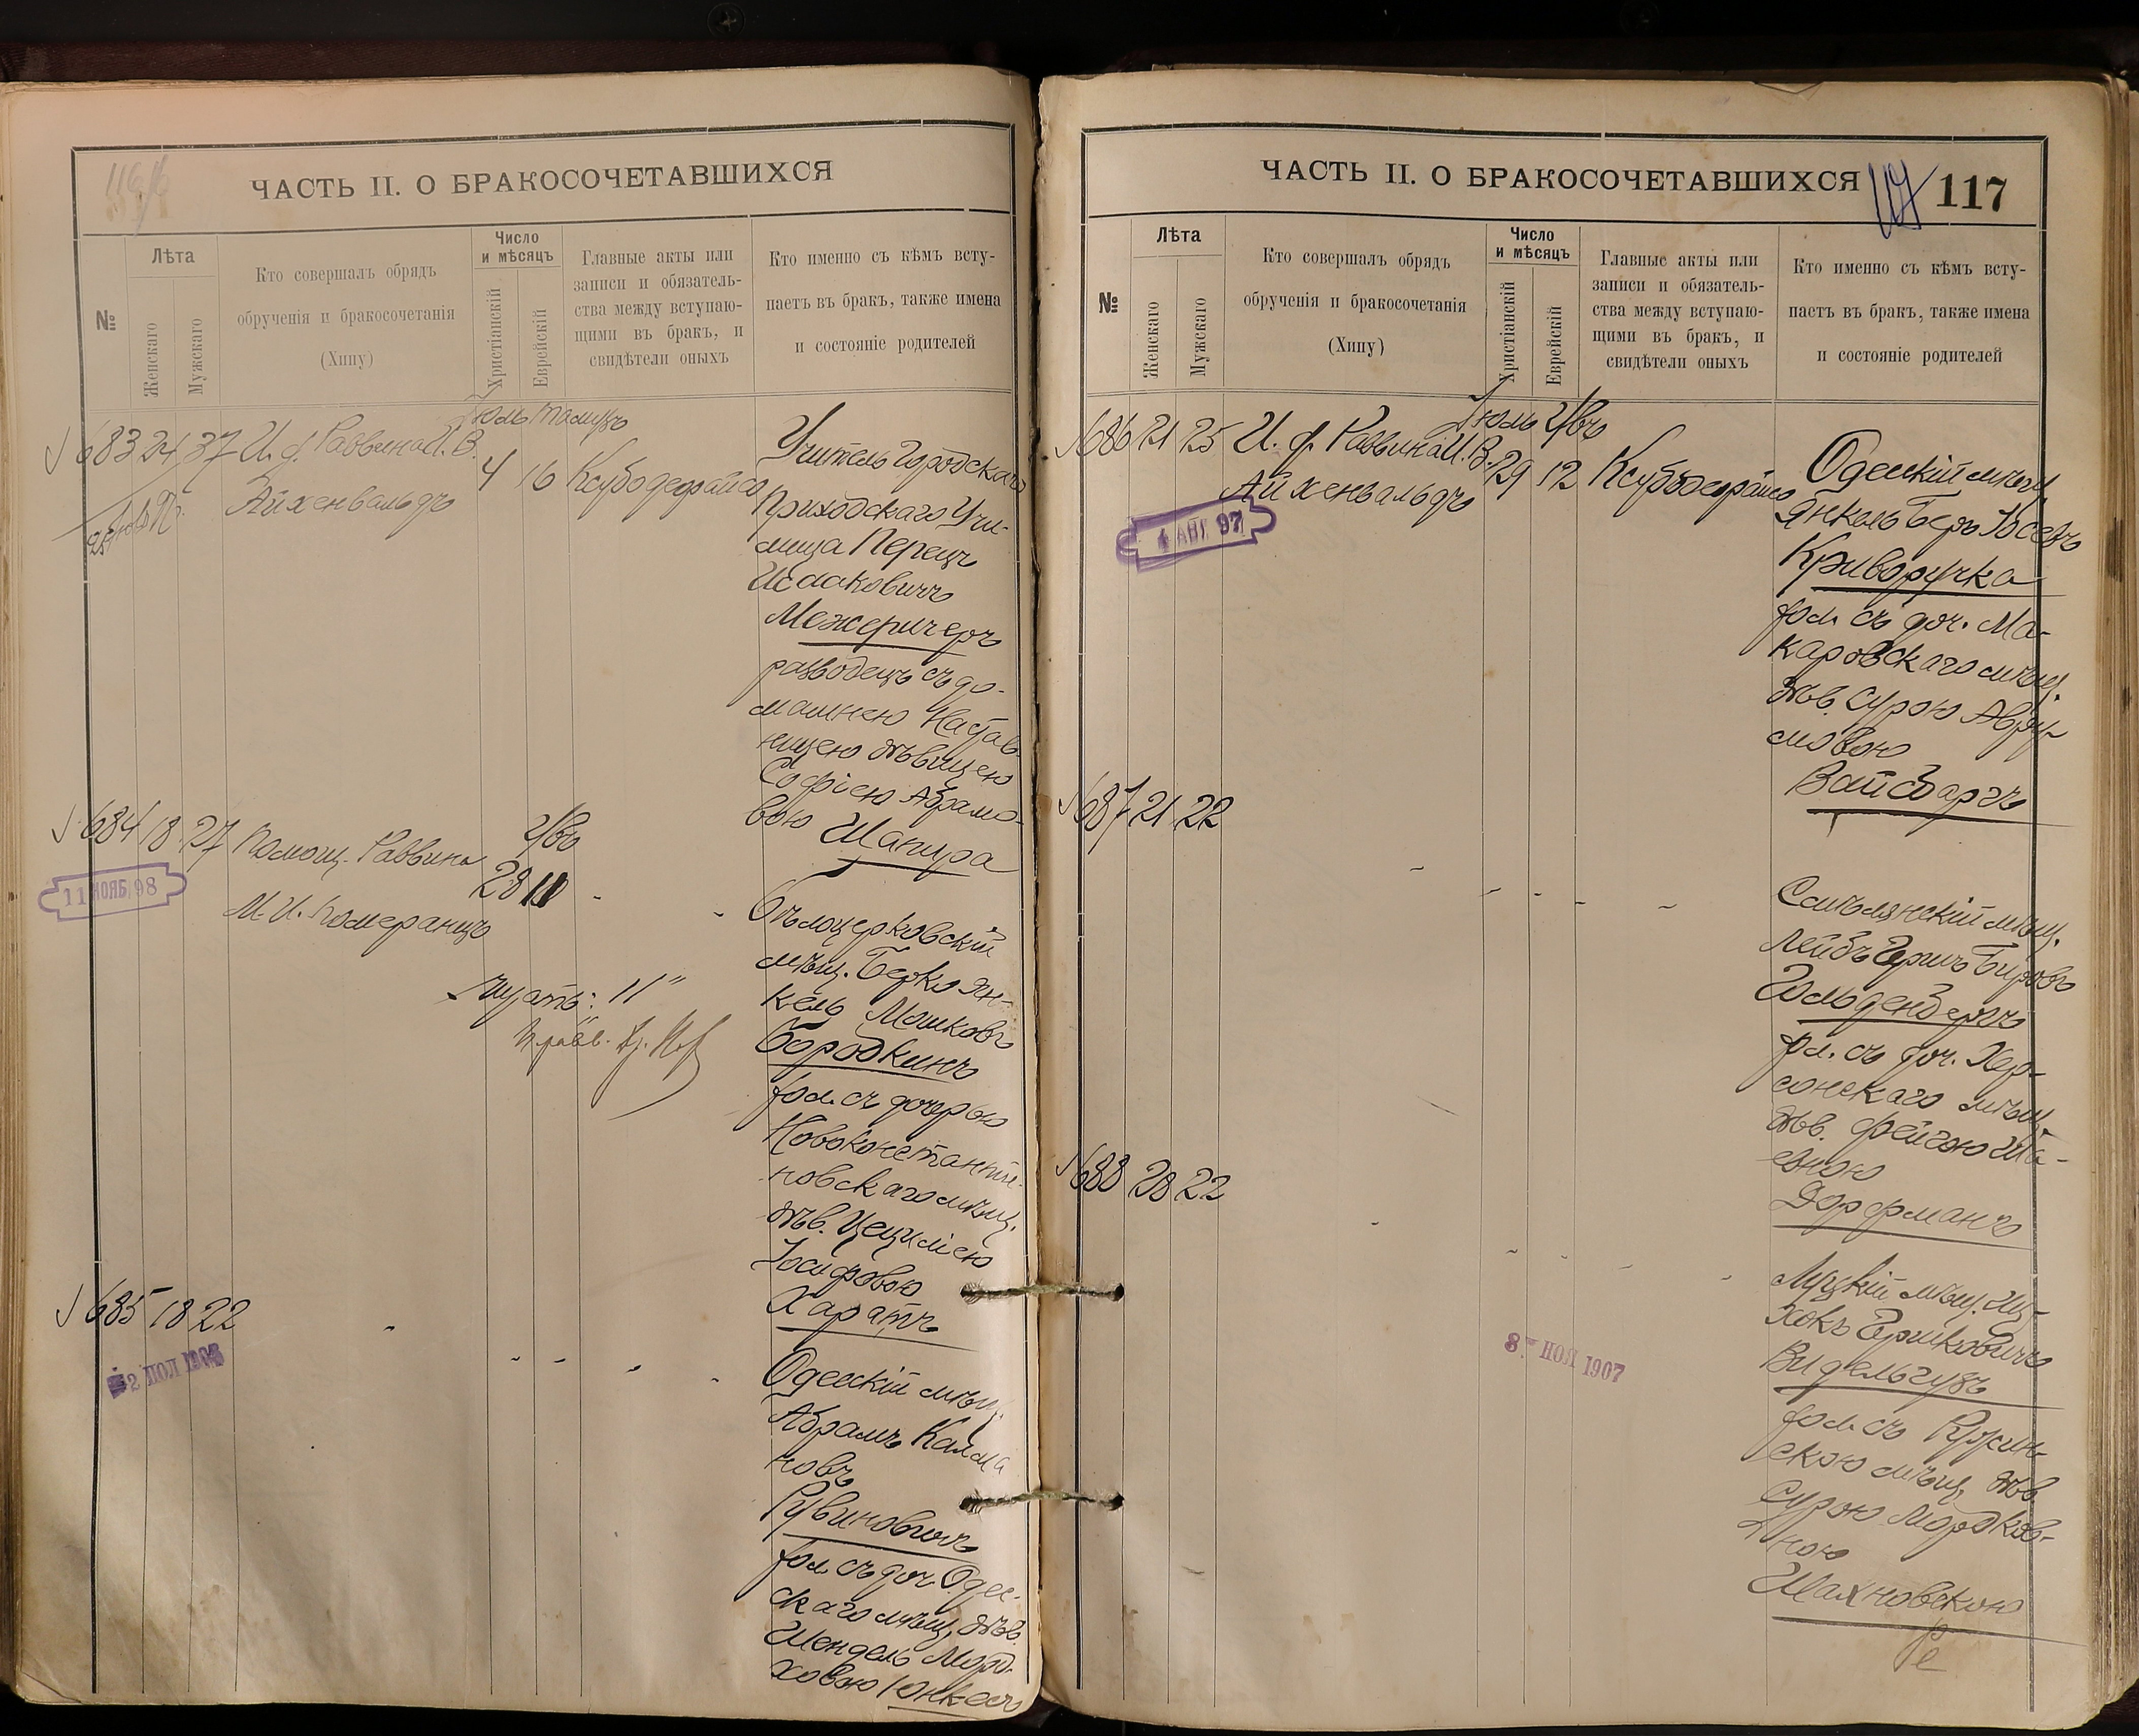 ЧАСТЬ II. О БРАКОСОЧЕТАВШИХСЯ
№
Лѣта
Женскаго
Мужскаго
Кто совершалъ обрядъ
обрученія и бракосочетанія
(Хипу)
Число
и мѣсяцъ
Христіанскій
Еврейскій
Главные акты или
записи и обязатель-
ства между вступаю-
щими въ бракъ, и
свидѣтели оныхъ
Кто именно съ кѣмъ всту-
паетъ въ бракъ, также имена
и состояніе родителей
683 24 37 И. д. Раввина И. В.
Айхенвальдъ
Іюль
4 16
Учитель Городскаго
Приходскаго Учи-
лища Перецъ
Исааковичъ
Межеричеръ
разводецъ съ до-
машнею Настав
ницею дѣвицею
Софіею Абрамо-
вою Шапира
684 18 27 Помощ. Раввина
М. И. Померанцъ
28 11
11 НОЯБ 98
Бѣлоцерковскій
мѣщ. Берко Ян-
кель Мошковъ
Бородкинъ
хол. съ дочерью
Новоконстанти-
новскаго мѣщ.
дѣв. Цециліею
Іосифовою
Харатъ
685 18 22
Одесскій мѣщ.
Абрамъ Калма
новъ
Рувиновичъ
хол. съ доч. Одес-
скаго мѣщ. дѣв.
Шендель Морд-
ховою Юнкесъ
ЧАСТЬ II. О БРАКОСОЧЕТАВШИХСЯ
117 117
№
Лѣта
Женскаго
Мужскаго
Кто совершалъ обрядъ
обрученія и бракосочетанія
(Хипу)
Число
и мѣсяцъ
Христіанскій
Еврейскій
Главные акты или
записи и обязатель-
ства между вступаю-
щими въ бракъ, и
свидѣтели оныхъ
Кто именно съ кѣмъ всту-
паетъ въ бракъ, также имена
и состояніе родителей
686 21 25 И. д. Раввина И. В.
Айхенвальдъ
Іюль
29 12
4 АПГ 97
Одесскій мѣщ.
Янкель Беръ Іосевъ
Криворучка
хол. съ доч. Ма-
каровскаго мѣщ.
дѣв. Сурою Авру-
мовою
Вайсбаргъ
687 21 22
Смѣлянскій мѣщ.
Лейбъ Гершъ Беровъ
Гольденбергъ
хол. съ доч. Хер-
сонскаго мѣщ.
дѣв. Фейгою Ша-
евною
Дорфманъ
688 20 22
8 - НОЯ 1907
Луцкій мѣщ. Иц-
хокъ Гершковичъ
Видельгузъ
хол. съ
скою мѣщ. дѣв.
Сурою Мордков-
ною
Шахновскою